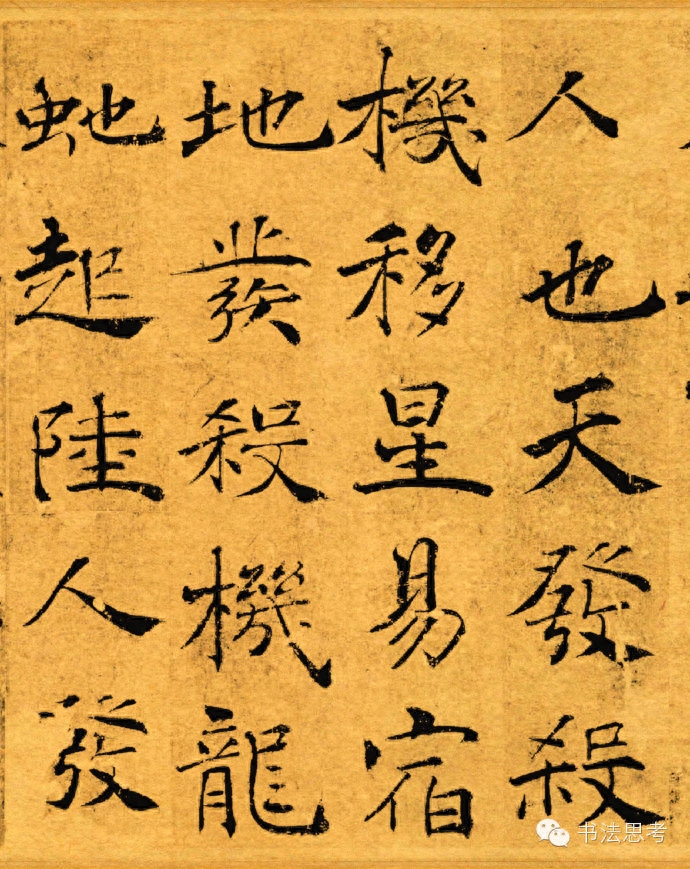 人也天發殺
機移星易宿
地發殺機龍
虵起陸人發
书法思考